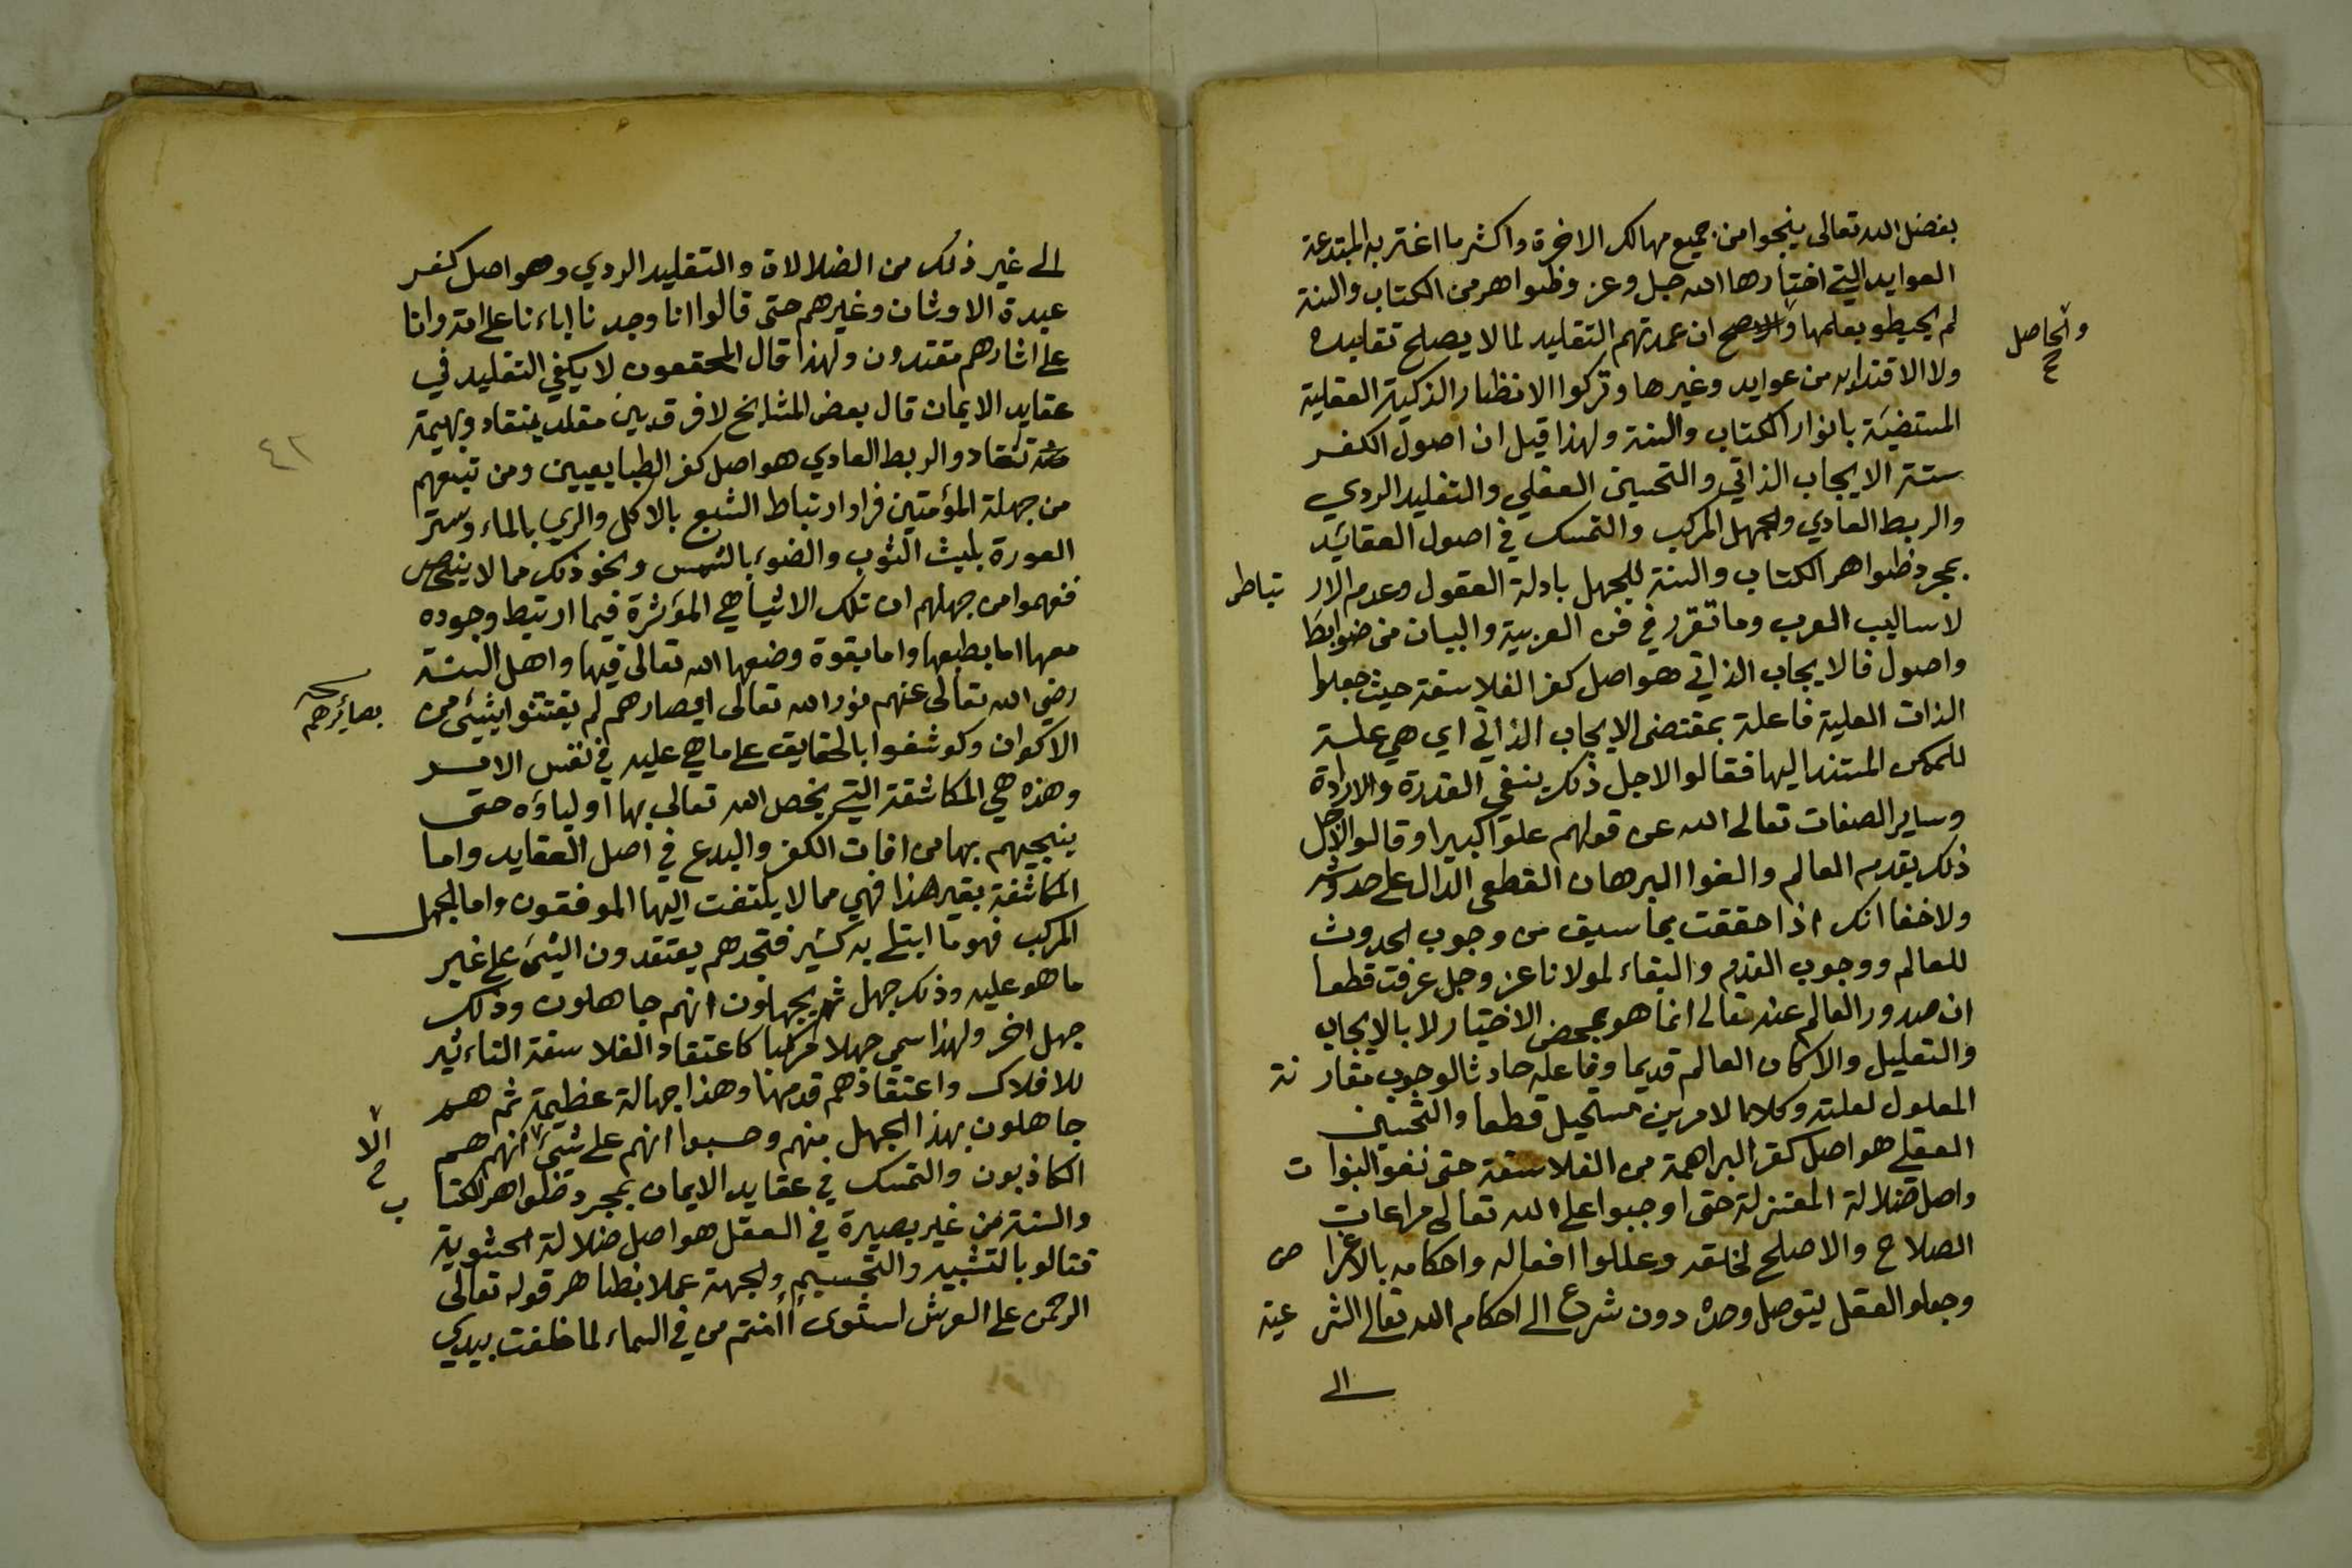 بفضل الله تعالى ينجوا من جميع مهالك الاخرة واكثر ما اغتر به المبتدعة
العوايد التي اختارها الله جل وعز وظواهر من الكتاب والسنة
لم يحيطو بعلمها ان عمدتهم التقليد لما لا يصلح تقليده
والحاصل
ولا الاقتداء به من عوايد وغيرها وتركوا الانظار الذكية العقلية
المستضيئة بانوار الكتاب والسنة ولهذا قيل ان اصول الكفر
ستة الايجاب الذاتي والتحسين العقلي والتقليد الردي
والربط العادي والجهل المركب والتمسك في اصول العقائيد
بمجرد ظواهر الكتاب والسنة للجهل بادلة العقول وعدم الار تباط
لاساليب العرب وما تقرر في فن العربية والبيان من ضوابط
واصول فالايجاب الذاتي هو اصل كفر الفلاسفة حيث جعلوا
الذات العلية فاعلة بمقتضى الايجاب الذاتي اي هي علة
للممكن المستند اليها فقالوا لاجل ذلك ينفي القدرة والارادة
وساير الصفات تعالى الله عن قولهم علوا كبيرا وقالوا لاجل
ذلك بقدم العالم والغوا البرهان القطعي الدال على حدوثه
ولا خفا انك اذا حققت بما سبق من وجوب الحدوث
للعالم ووجوب القدم والبقاء لمولانا عز وجل عرفت قطعا
ان صدور العالم عنه تعالى انما هو بمحض الاختيار لا بالايجاب
والتعليل والا كان العالم قديما وفاعله حادثا لوجوب مقار نة
المعلول لعلته وكلا الامرين مستحيل قطعا والتحسين
العقلي هو اصل كفر البراهمة من الفلاسفة حتى نفوا النبوا ت
واصل ضلالة المعتزلة حتى اوجبوا على الله تعالى مراعات
الصلاح والاصلح لخلقه وعللوا افعاله واحكامه بالاغرا ض
وجعلو العقل يتوصل وحده دون شرع الى احكام الله تعالى الشر عية
الى
الى غير ذلك من الضلالات والتقليد الردي وهو اصل كفر
عبدة الاوثان وغيرهم حتى قالوا انا وجدنا اباءنا على امة وانا
على اثارهم مقتدون ولهذا قال المحققون لا يكفي التقليد في
عقايد الايمان قال بعض المشايخ لا فرق بين مقلد ينقاد وبهيمة
٤٢
تنقاد والربط العادي هو اصل كفر الطبايعيين ومن تبعهم
من جهلة المؤمنين فراوا ارتباط الشبع بالاكل والري بالماء وستر
العورة بلبث الثوب والضوء بالشمس ونحو ذلك مما لا ينحصر
ففهموا من جهلهم ان تلك الاشيا هي المؤثرة فيما ارتبط وجوده
معها اما بطبعها واما بقوة وضعها الله تعالى فيها واهل السنة
رضي الله تعالى عنهم نور الله تعالى ابصارهم لم يفتتنوا بشيئ من
بصائرهم
الاكوان وكوشفوا بالحقايق على ما هي عليه في نفس الامر
وهذه هي المكاشفة التي يخص الله تعالى بها اولياؤه حتى
ينجيهم بها من افات الكفر والبدع في اصل العقايد واما
المكاشفة بغير هذا فهي مما لا يلتفت اليها الموفقون واما الجهل
المركب فهو ما ابتلى به كثير فتجدهم يعتقدون الشيئ على غير
ما هو عليه وذلك جهل ثم يجهلون انهم جاهلون وذلك
جهل اخر ولهذا سمي جهلا مركبا كاعتقاد الفلاسفة التاءثير
للافلاك واعتقادهم قدمها وهذا جهالة عظيمة ثم هم
جاهلون بهذا الجهل منهم وحسبوا انهم على شيئ انهم هم
الا
الكاذبون والتمسك في عقايد الايمان بمجرد ظواهر الكتا ب
والسنة من غير بصيرة في العقل هو اصل ضلالة الحشوية
فقالو بالتشبيه والتجسيم والجهة عملا بظاهر قوله تعالى
الرحمن على العرش استوى أأمنتم من في السماء لما خلقت بيدي